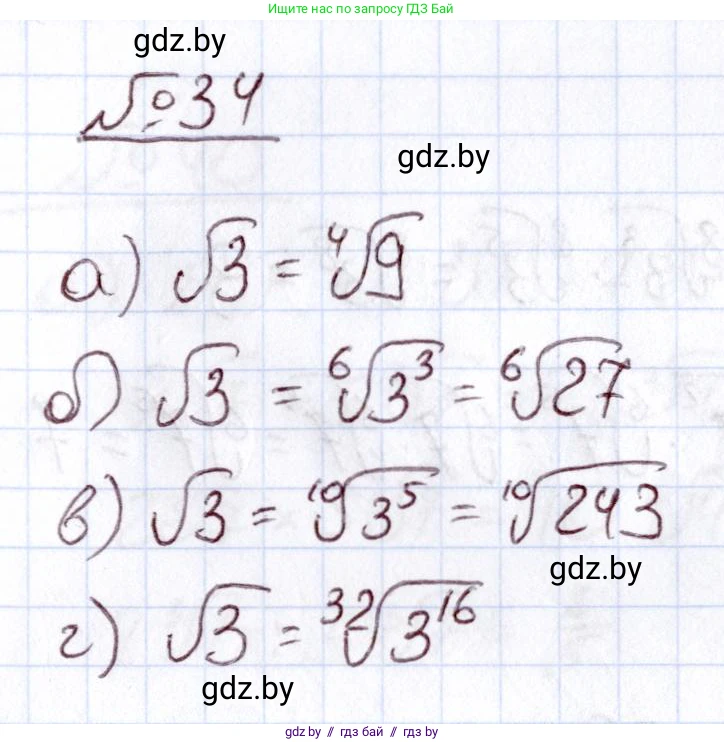 Ищите нас по запросу ГДЗ Бай
gdz.by
№34
gdz.by
а) √3 = ⁴√9
б) √3 = ⁶√3³ = ⁶√27
в) √3 = ¹⁰√3⁵ = ¹⁰√243
gdz.by
г) √3 = ³²√3¹⁶
gdz.by
gdz.by // гдз бай // гдз by